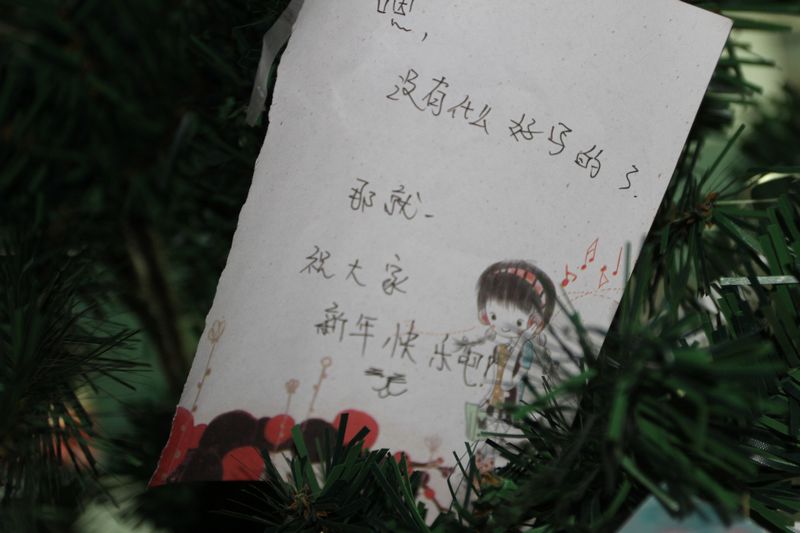 嗯，
没有什么好写的了.
那就-
祝大家
新年快乐吧!